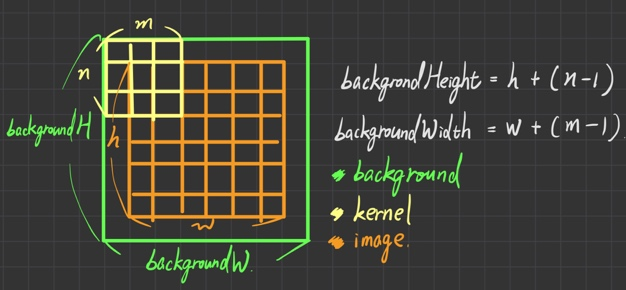 m
n
backgroundH
h
w
backgroundW.
backgrondHeight = h + (n-1)
backgroundWidth = w + (m-1)
background
kernel
image.